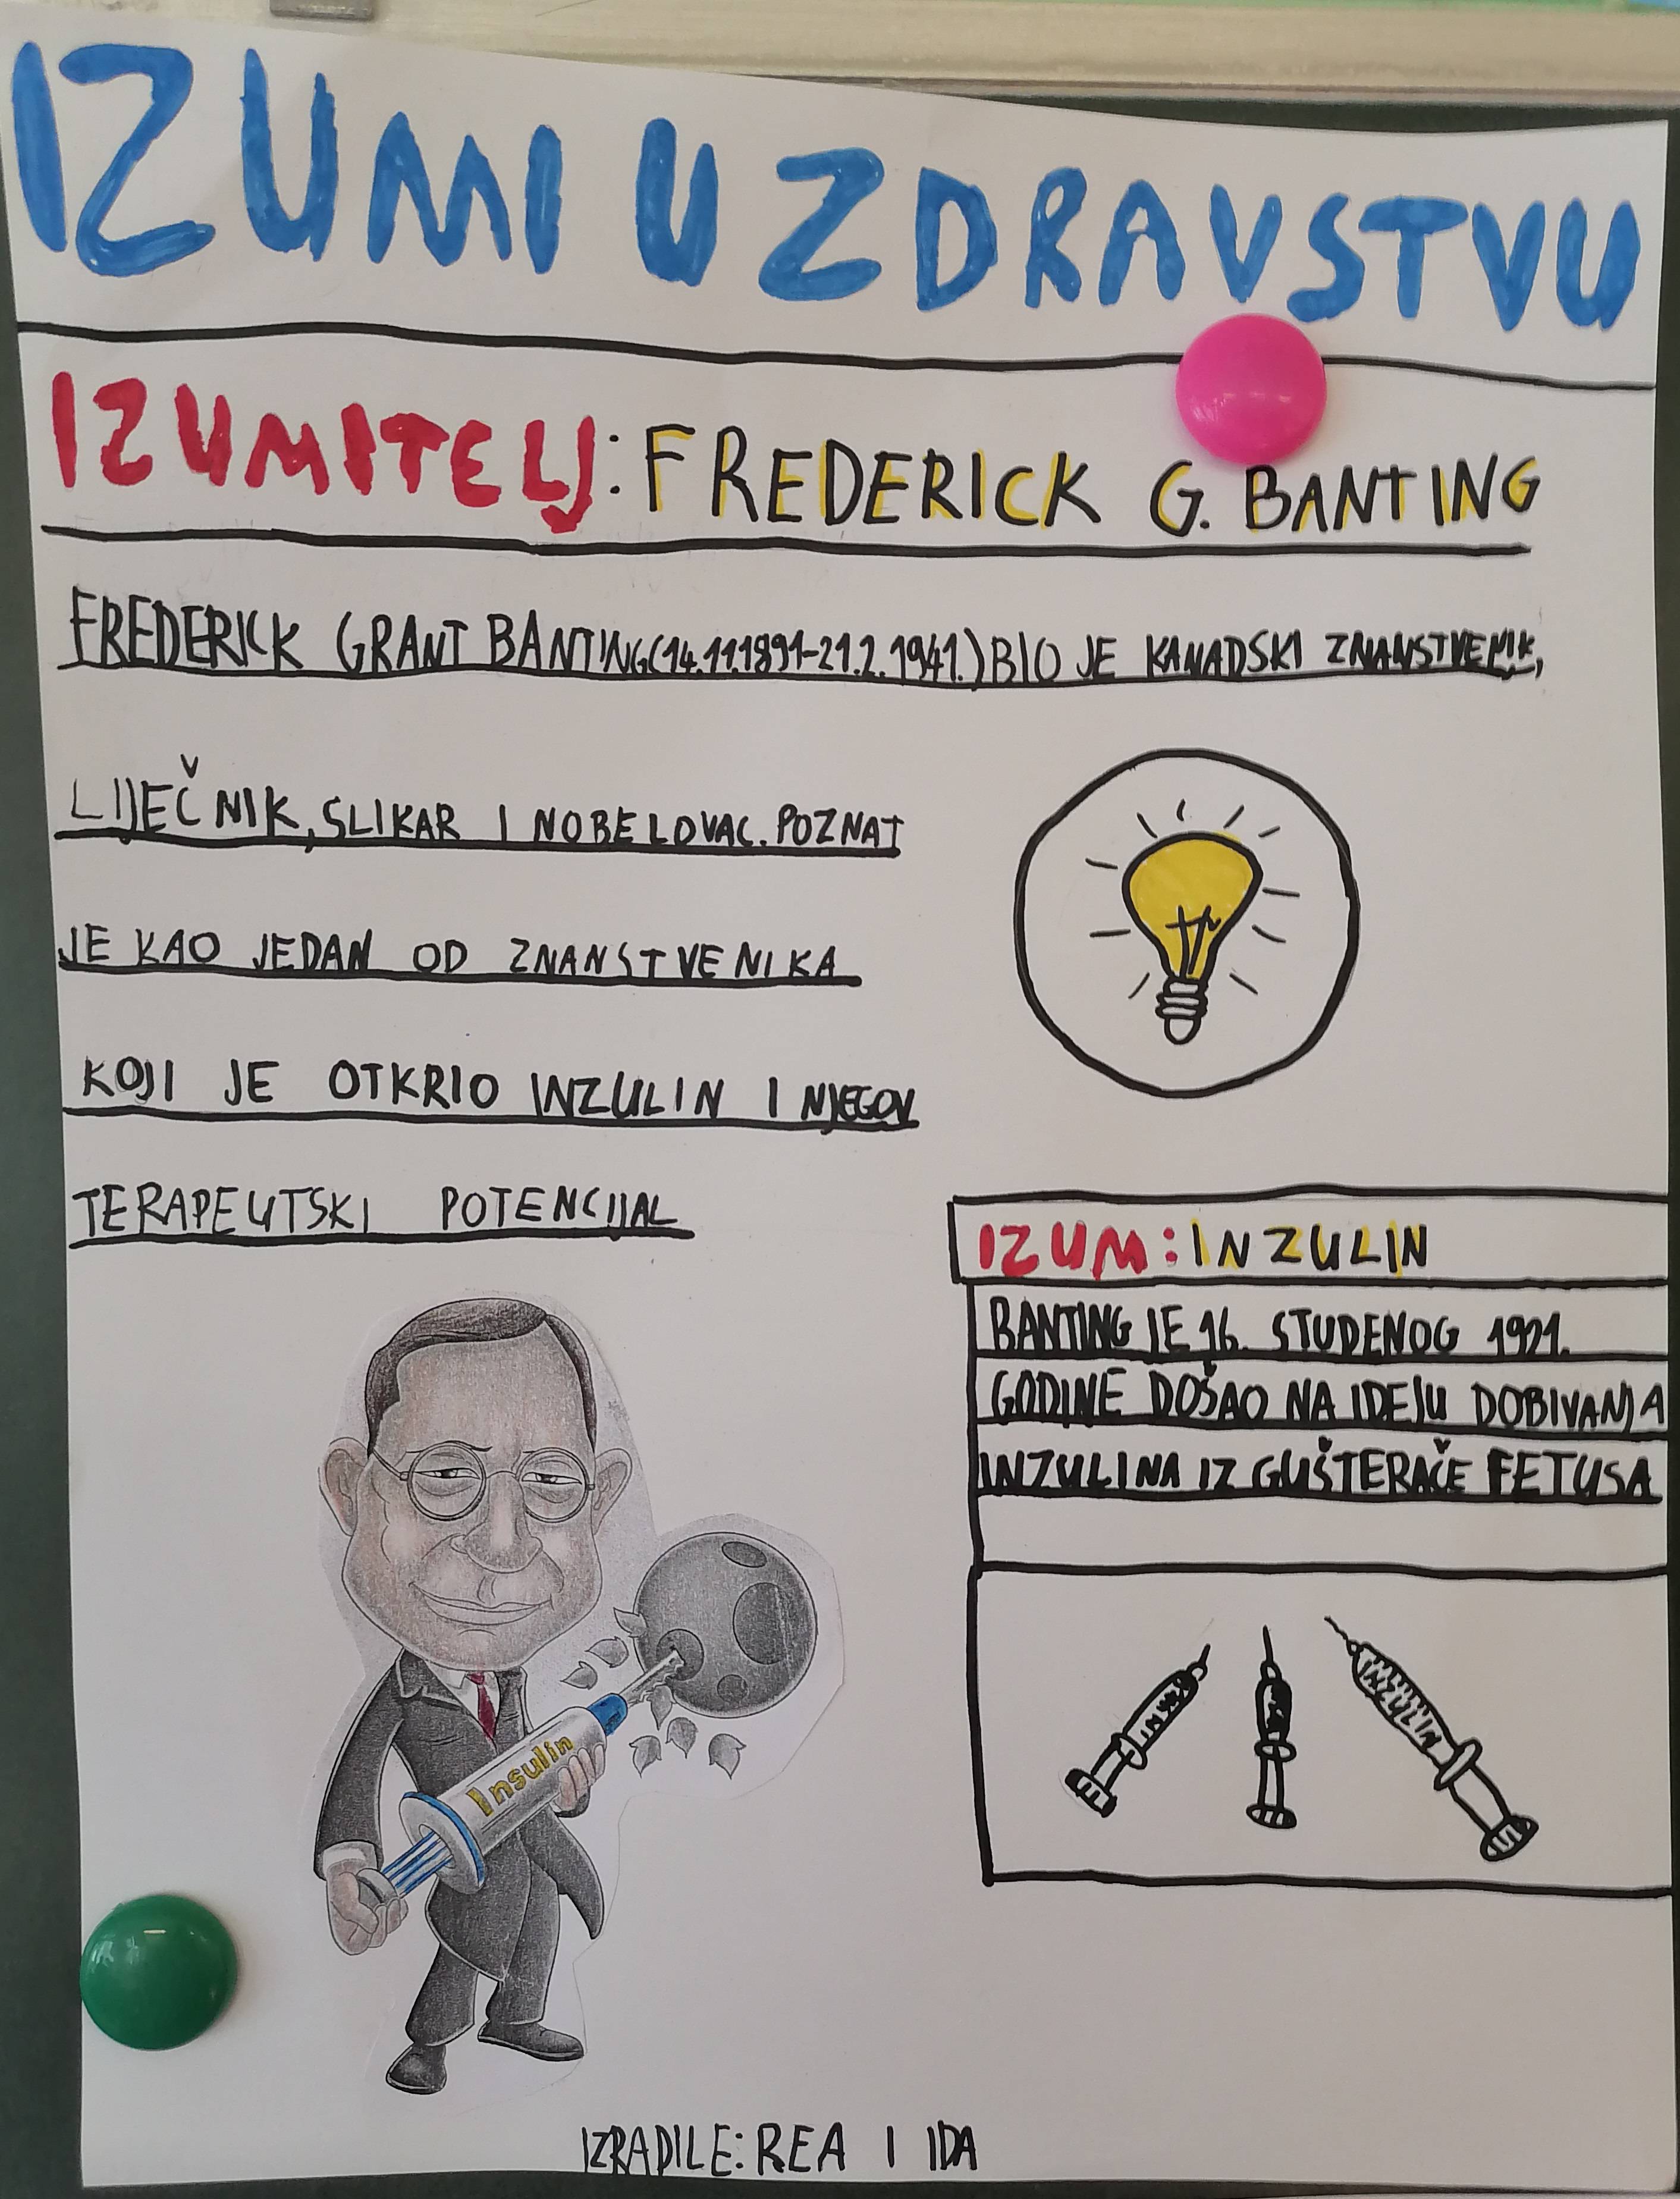 IZUMI U ZDRAVSTVU
IZUMITELJ: FREDERICK G. BANTING
FREDERICK GRANT BANTING(14.11.1891-21.2.1941.)BIO JE KANADSKI ZNANSTVENIK,
LIJEČNIK, SLIKAR I NOBELOVAC. POZNAT
JE KAO JEDAN OD ZNANSTVENIKA
KOJI JE OTKRIO INZULIN I NJEGOV
TERAPEUTSKI POTENCIJAL
IZUM: INZULIN
BANTING JE 16. STUDENOG 1921.
GODINE DOŠAO NA IDEJU DOBIVANJA
INZULINA IZ GUŠTERAČE FETUSA
INZULIN
Insulin
IZRADILE: REA I IDA